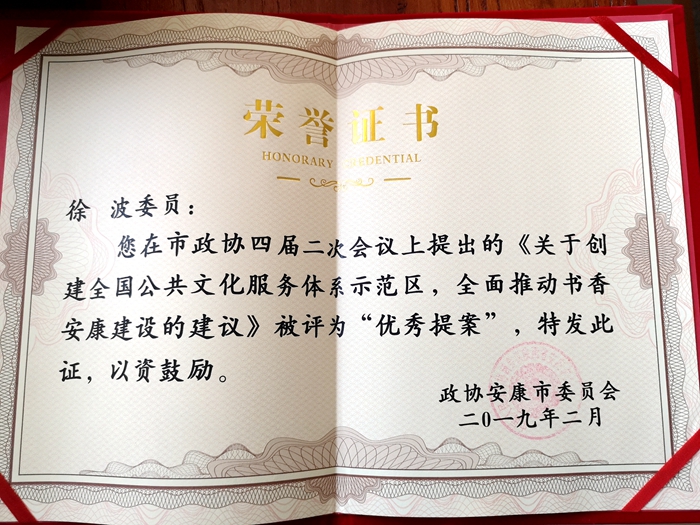 荣誉证书
HONORARY CREDENTIAL
徐 波委员：
您在市政协四届二次会议上提出的《关于创
建全国公共文化服务体系示范区，全面推动书香
安康建设的建议》被评为“优秀提案”，特发此
证，以资鼓励。
政协安康市委员会
二0一九年二月